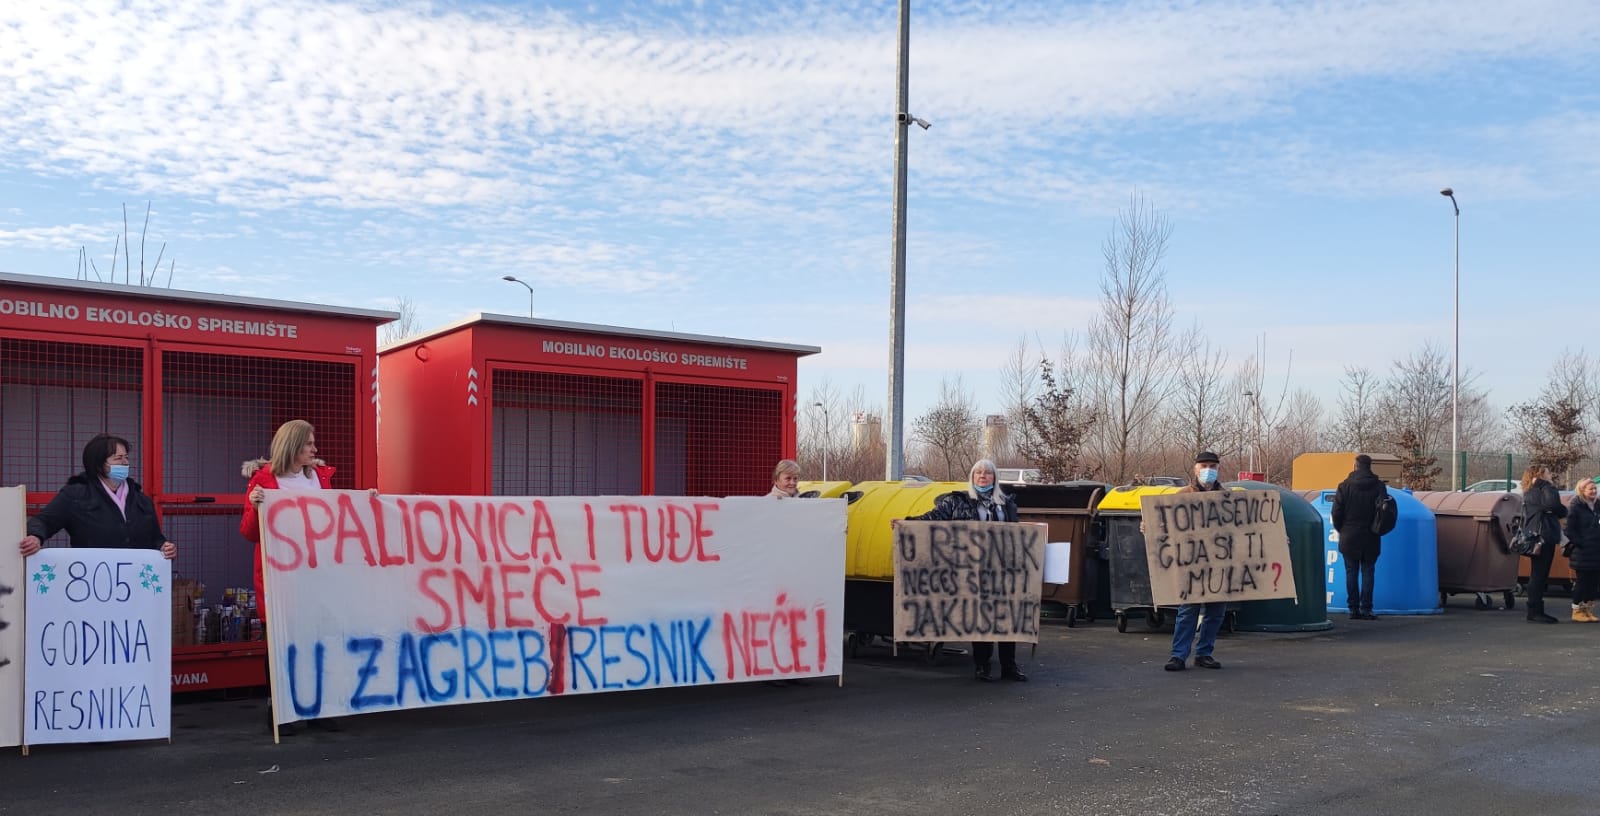 OBILNO EKOLOŠKO SPREMIŠTE
MOBILNO EKOLOŠKO SPREMIŠTE
805
GODINA
RESNIKA
SPALIONICA I TUĐE
SMEĆE
U ZAGREB I RESNIK NEĆE!
U RESNIK
NEĆEŠ SELITI
JAKUŠEVEC
TOMAŠEVIĆU
ČIJA SI TI
„MULA"?
VANA
api r